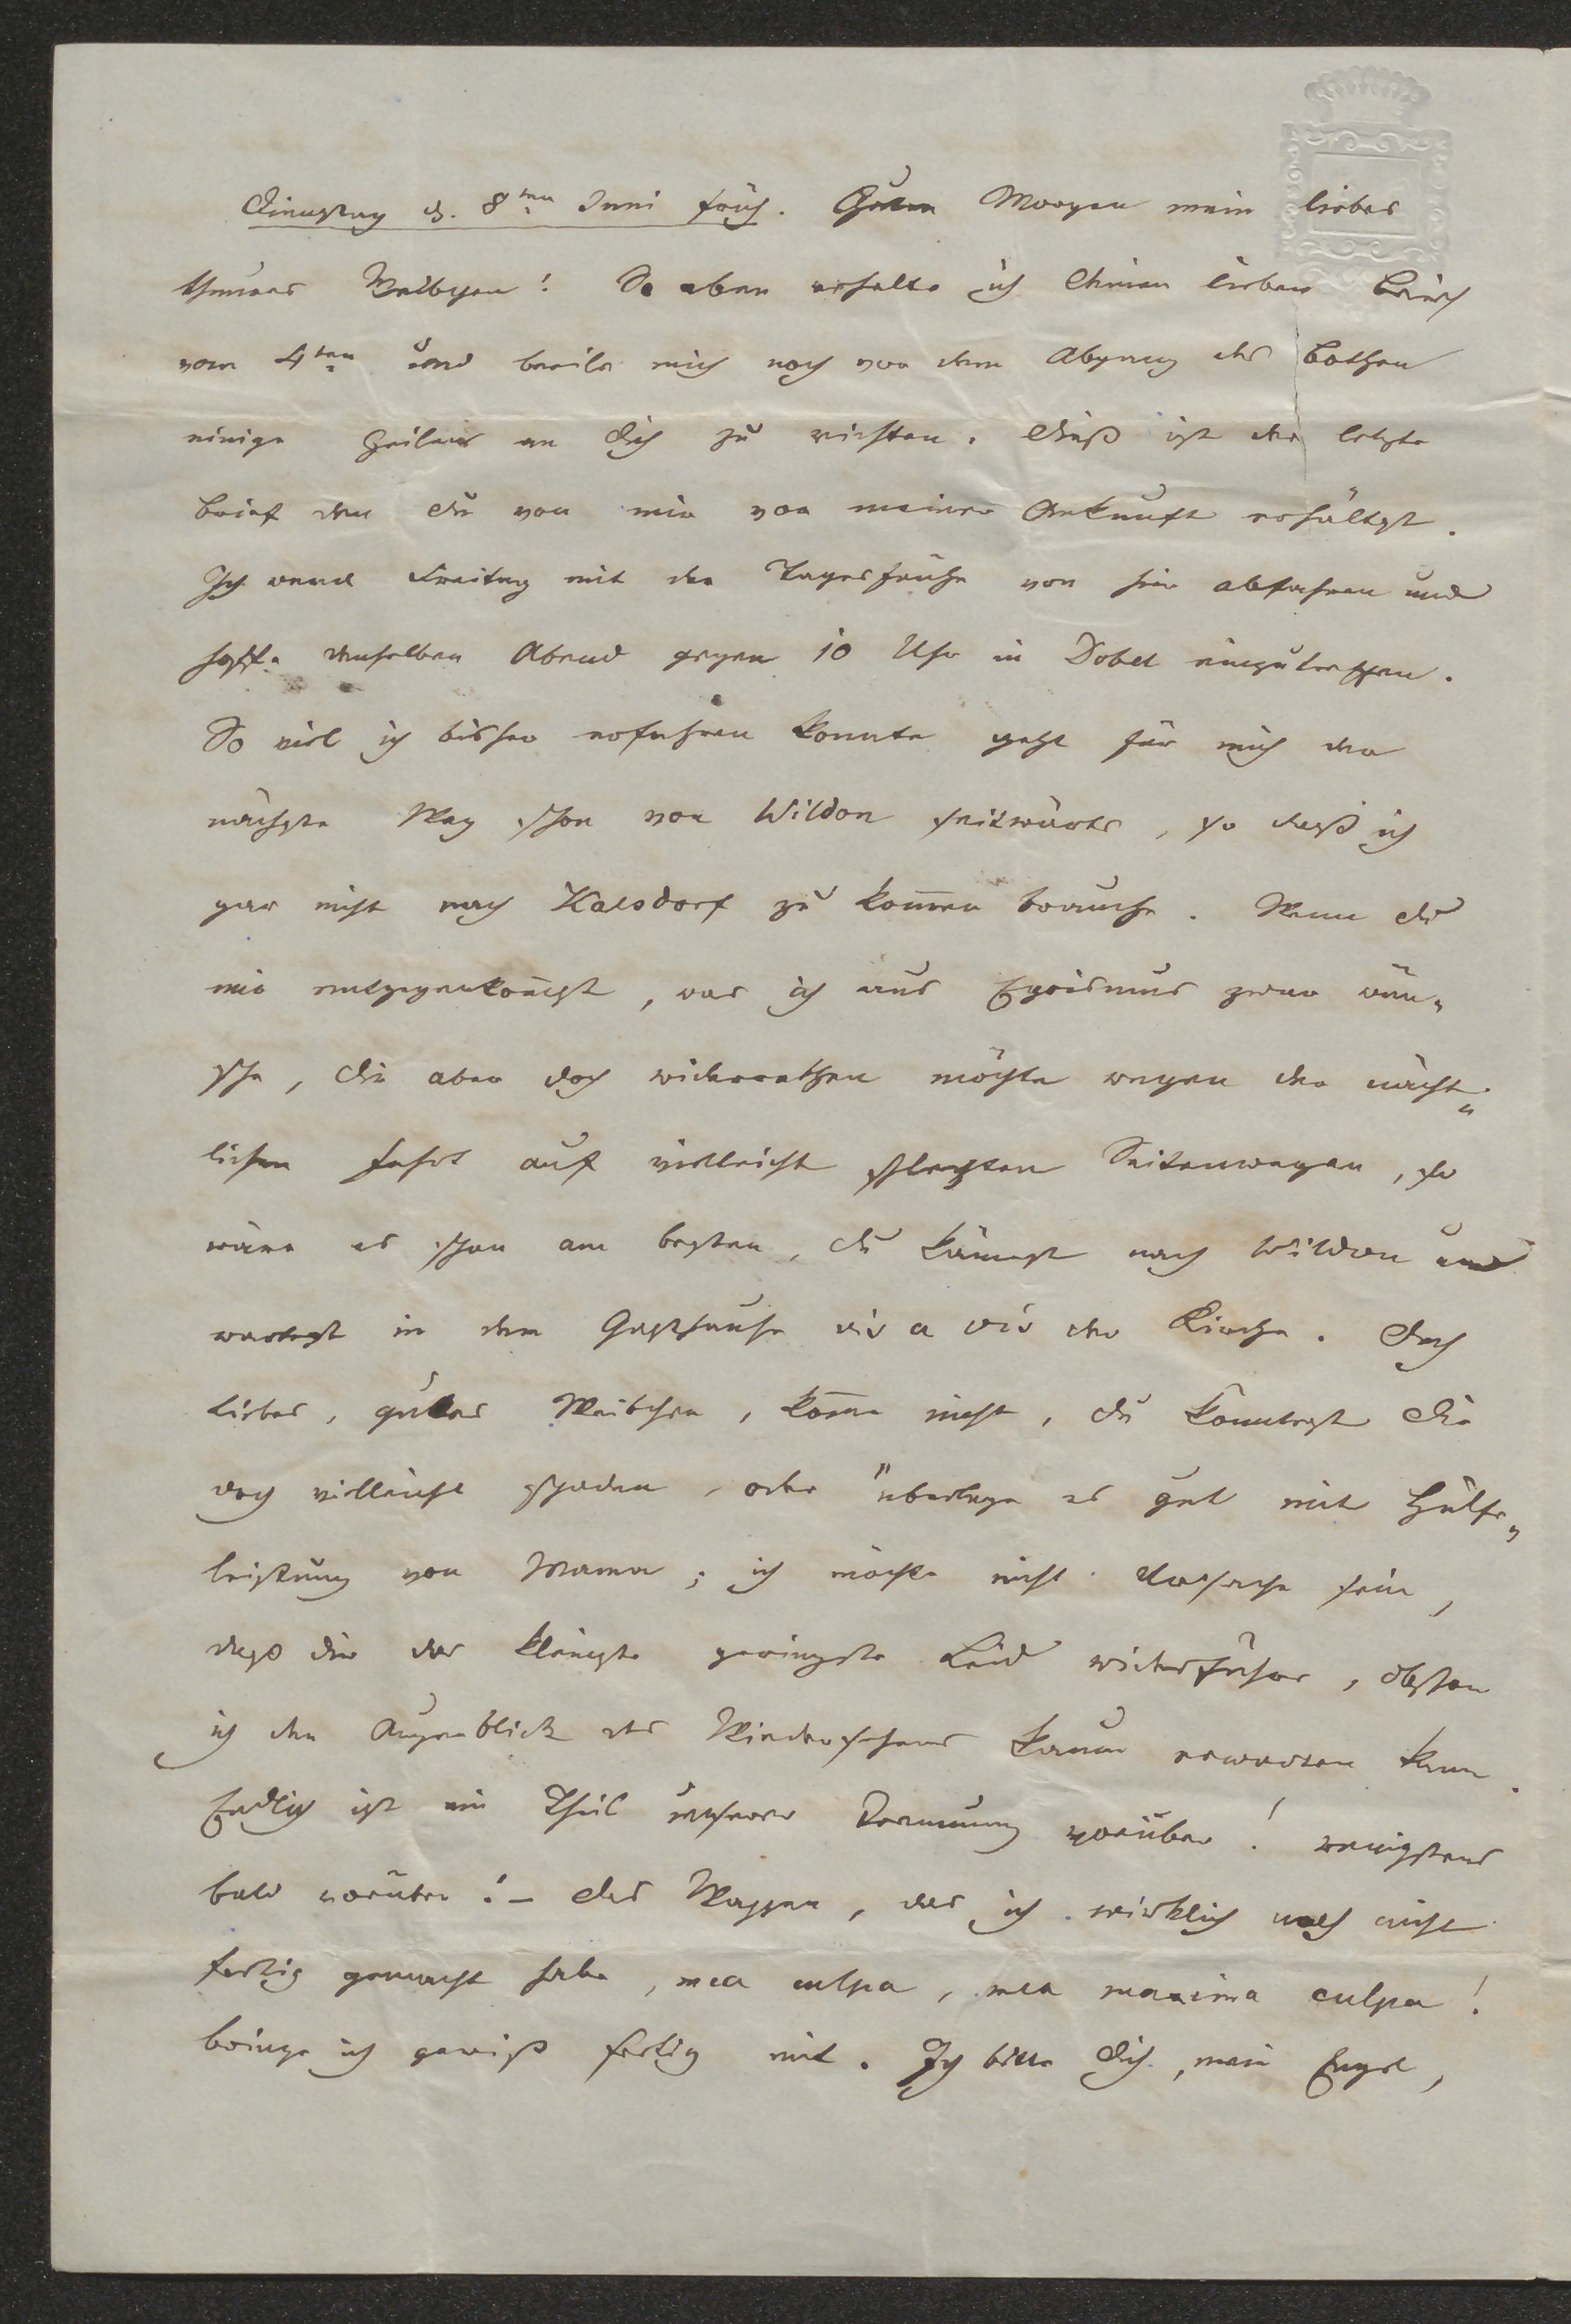 Dienstag d. 8ten Juni früh. Guten Morgen mein liebes
theures Weibchen! So eben erhalte ich Deinen lieben Brief
vom 4ten und beeile mich noch vor dem Abgang des Bothen
einige Zeilen an Dich zu richten. Dieß ist der letzte
Brief den Du von mir vor meiner Ankunft erhältst.
Ich werde Freitag mit der Tagesfrühe von hier abfahren und
hoffe denselben Abend gegen 10 Uhr in Dobel einzutreffen.
So viel ich bisher erfahren konnte geht für mich der
nächste Weg schon von Wildon seitwärts, so daß ich
gar nicht nach Kalsdorf zu kom̄en brauche. Wenn Du
mir entgegenkom̄st, was ich aus Egoismus zwar wün„
sche, Dir aber doch widerrathen möchte wegen der nächt„
lichen Fahrt auf vielleicht schlechten Seitenwegen, so
wäre es schon am besten, Du kämest nach Wildon und
wartest in dem Gasthause vis a vis der Kirche. Doch
liebes, gutes Weibchen, kom̄e nicht, Du könntest Dir
doch vielleicht schaden, oder überlege es gut mit Hülfe„
leistung von Mama; ich möchte nicht Ursache sein,
daß Dir das kleinste geringste Leid widerführe, obschon
ich den Augenblick des Wiedersehens kaum erwarten kann.
Endlich ist ein Theil unserer Trennung vorüber! wenigstens
bald vorüber! – Das Wappen, das ich wirklich noch nicht
fertig gemacht habe, mea culpa, mea maxima culpa!
bringe ich gewiß fertig mit. Ich bitte Dich, mein Engel,